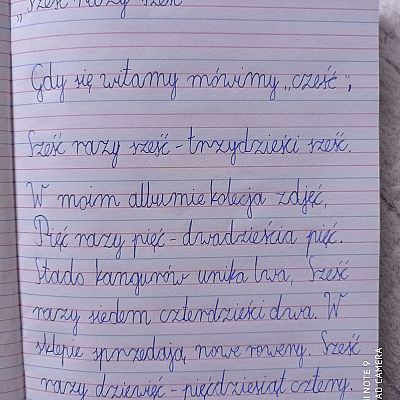 „Sześć razy sześć"
Gdy się witamy mówimy „cześć",
Sześć razy sześć - trzydzieści sześć.
W moim albumie kolecja zdjęć,
Pięć razy pięć - dwadzieścia pięć.
Stado kangurów unika lwa, Sześć
razy siedem czterdzieści dwa. W
sklepie sprzedają nowe rowery. Sześć
razy dziewięć - pięćdziesiąt cztery.
MI NOTE 9
AD CAMERA